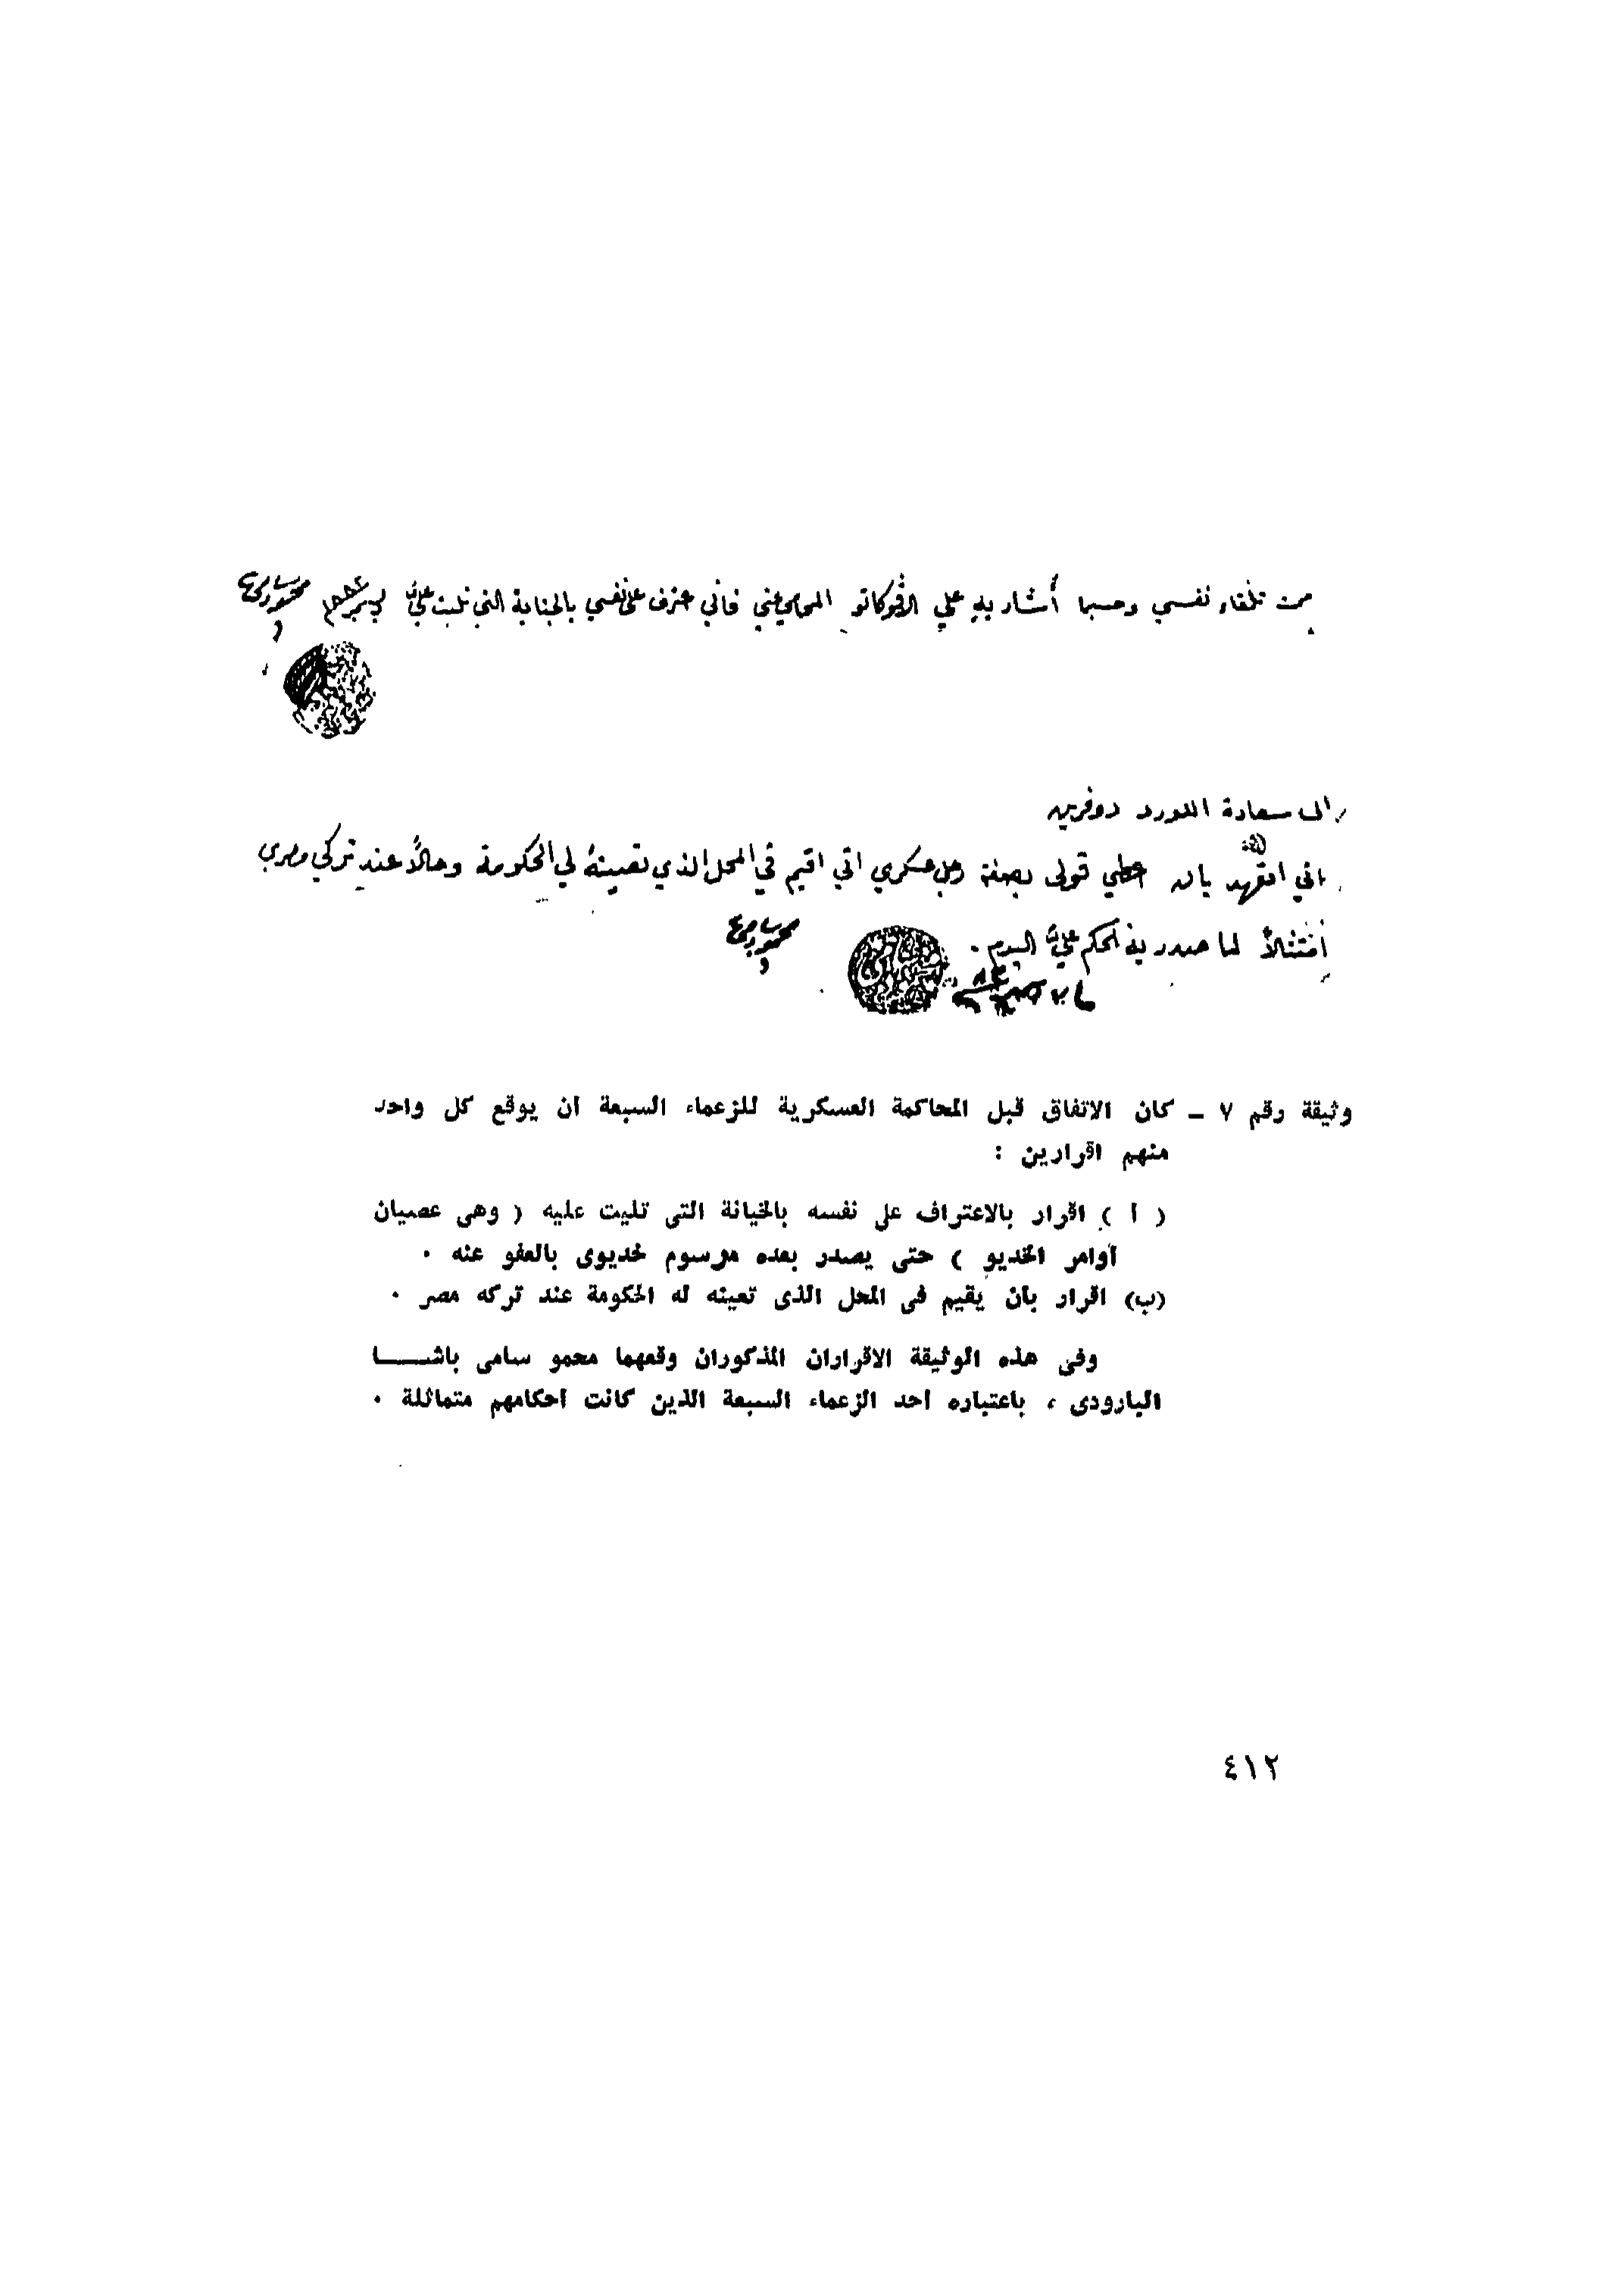 من تلقاء نفسي وحسبما أشار به علي الافوكاتو المحامي عني فاني اعترف على نفسي بالجناية التي تليت عليّ في ١٨٨٢
محمود سامي
الى سعادة اللورد دوفرين
اني اتعهد بان اعطي قولي بصفة رجل عسكري اني اقيم في المحل الذي تعينهُ لي الحكومة وحالاً عند تركي مصر
امتثالاً لما صدر به الحكم عليّ اليوم .
محمود سامي
وثيقة رقم ٧ – كان الاتفاق قبل المحاكمة العسكرية للزعماء السبعة ان يوقع كل واحد
منهم اقرارين :
( أ ) اقرار بالاعتراف على نفسه بالخيانة التى تليت عليه ( وهى عصيان
أوامر الخديو ) حتى يصدر بعده مرسوم خديوى بالعفو عنه .
(ب) اقرار بأن يقيم فى المحل الذى تعينه له الحكومة عند تركه مصر .
وفى هذه الوثيقة الاقراران المذكوران وقعهما محمو سامى باشـــا
البارودى ، باعتباره احد الزعماء السبعة الذين كانت احكامهم متماثلة .
٤١٢